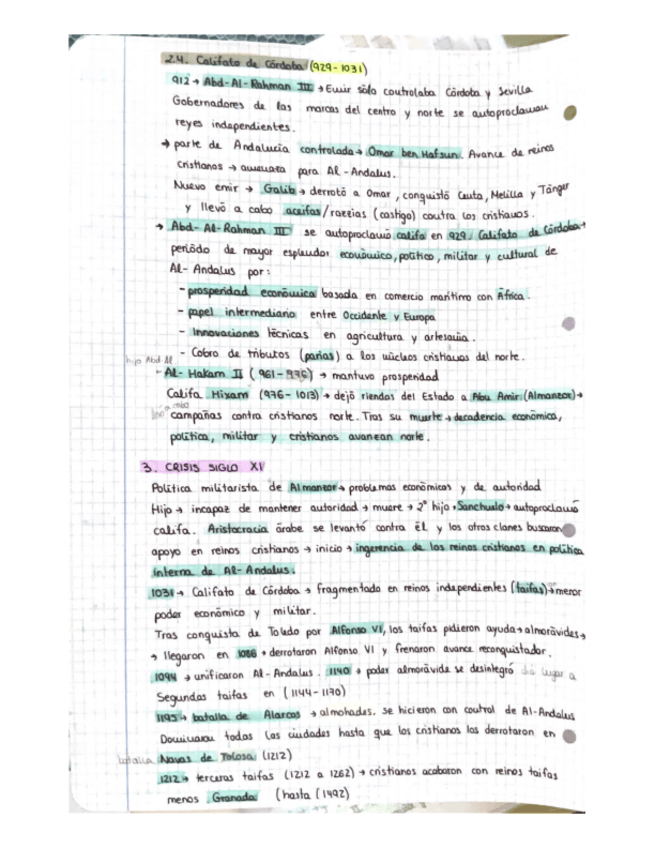 2.4. Califato de Córdoba (929-1031)
912 → Abd-Al-Rahman III → Emir sólo controlaba Córdoba y Sevilla
Gobernadores de las marcas del centro y norte se autoproclaman
reyes independientes.
→ parte de Andalucía controlada → Omar ben Hafsun. Avance de reinos
cristianos → amenaza para Al-Andalus.
Nuevo emir → Galib → derrotó a Omar, conquistó Ceuta, Melilla y Tánger
y llevó a cabo aceifas/razzias (castigo) contra los cristianos.
→ Abd-Al-Rahman III se autoproclamó califa en 929. Califato de Córdoba →
periodo de mayor esplendor económico, político, militar y cultural de
Al-Andalus por:
- prosperidad económica basada en comercio marítimo con África.
- papel intermediario entre Occidente y Europa
- Innovaciones técnicas en agricultura y artesanía.
- Cobro de tributos (parias) a los núcleos cristianos del norte.
hijo Abd-Al
- Al-Hakam II (961-976) → mantuvo prosperidad
Califa Hixam (976-1013) → dejó riendas del Estado a Abu Amir (Almanzor) →
campañas contra cristianos norte. Tras su muerte → decadencia económica,
política, militar y cristianos avanzan norte.
3. CRISIS SIGLO XI
Política militarista de Almanzor → problemas económicos y de autoridad
Hijo → incapaz de mantener autoridad → muere → 2º hijo, Sanchuelo → autoproclamó
califa. Aristocracia árabe se levantó contra él y los otros clanes buscaron
apoyo en reinos cristianos → inicio → ingerencia de los reinos cristianos en política
interna de Al-Andalus.
1031 → Califato de Córdoba → fragmentado en reinos independientes (taifas) → menor
poder económico y militar.
Tras conquista de Toledo por Alfonso VI, los taifas pidieron ayuda → almorávides →
→ llegaron en 1086 → derrotaron Alfonso VI y frenaron avance reconquistador.
1094 → unificaron Al-Andalus. 1140 → poder almorávide se desintegró dió lugar a
Segundas taifas en (1144-1170)
1195 → batalla de Alarcos → almohades. se hicieron con control de Al-Andalus
Dominaron todas las ciudades hasta que los cristianos los derrotaron en
batalla Navas de Tolosa (1212)
1212 → terceras taifas (1212 a 1262) → cristianos acabaron con reinos taifas
menos Granada (hasta 1492)